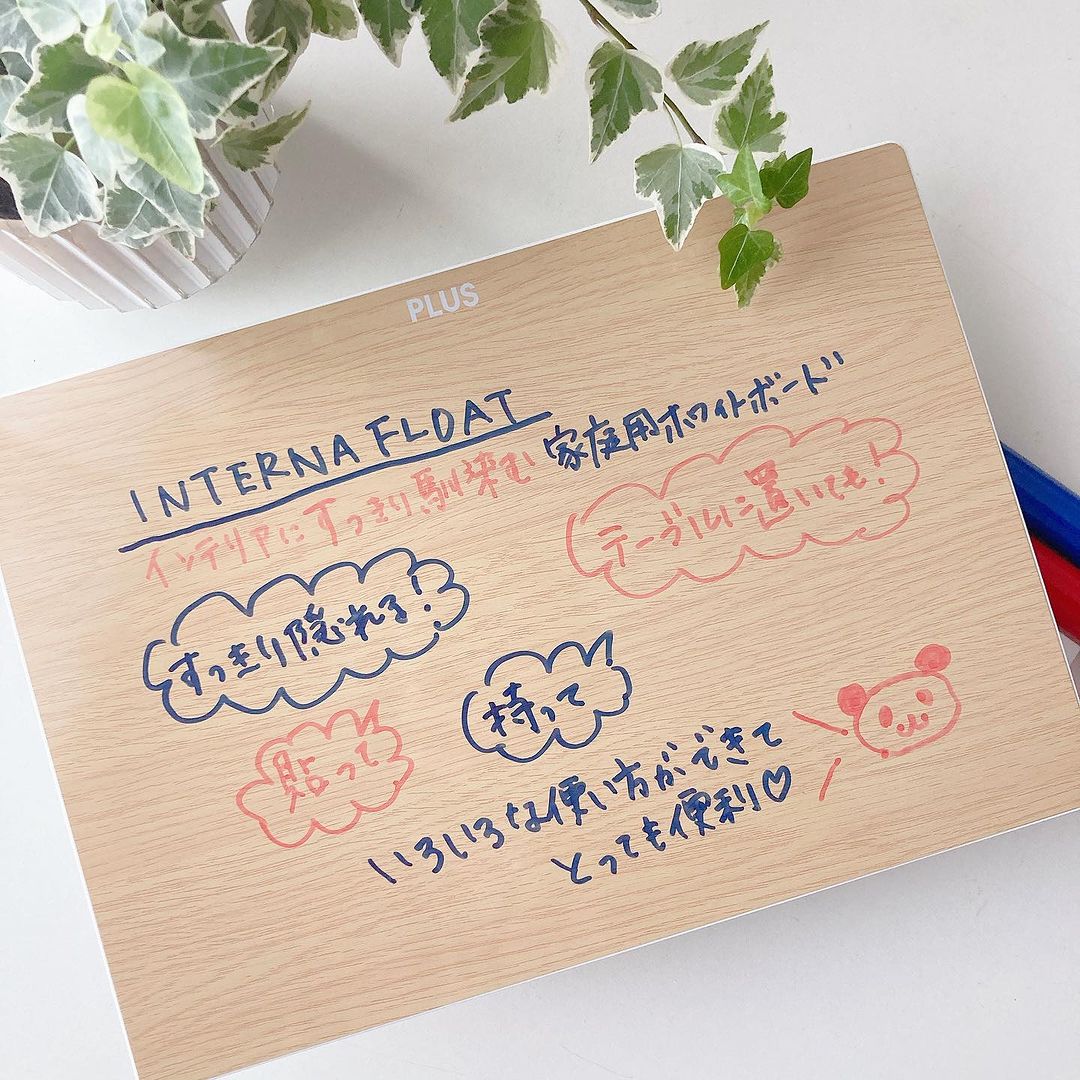 PLUS
INTERNA FLOAT
インテリアにすっきり馴染む 家庭用ホワイトボード
テーブルに置いても!
すっきり隠れる!
持って
貼って
いろいろな使い方ができて
とっても便利♡